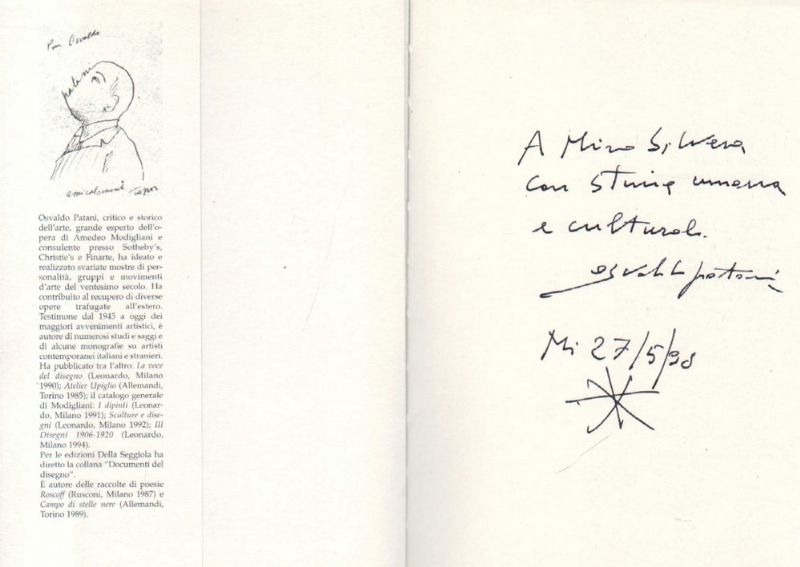 Per Osvaldo
patani
amicalement
Osvaldo Patani, critico e storico
dell'arte, grande esperto dell'o-
pera di Amedeo Modigliani e
consulente presso Sotheby's,
Christie's e Finarte, ha ideato e
realizzato svariate mostre di per-
sonalità, gruppi e movimenti
d'arte del ventesimo secolo. Ha
contribuito al recupero di diverse
opere trafugate all'estero.
Testimone dal 1945 a oggi dei
maggiori avvenimenti artistici, è
autore di numerosi studi e saggi e
di alcune monografie su artisti
contemporanei italiani e stranieri.
Ha pubblicato tra l'altro: La voce
del disegno (Leonardo, Milano
1990); Atelier Upiglio (Allemandi,
Torino 1985); il catalogo generale
di Modigliani: I dipinti (Leonar-
do, Milano 1991); Sculture e dise-
gni (Leonardo, Milano 1992); III
Disegni 1906-1920 (Leonardo,
Milano 1994).
Per le edizioni Della Seggiola ha
diretto la collana "Documenti del
disegno".
È autore delle raccolte di poesie
Roscoff (Rusconi, Milano 1987) e
Campo di stelle nere (Allemandi,
Torino 1989).
A Mino Silvera
con stima umana
e culturale.
osvaldo patani
Mi 27/5/98